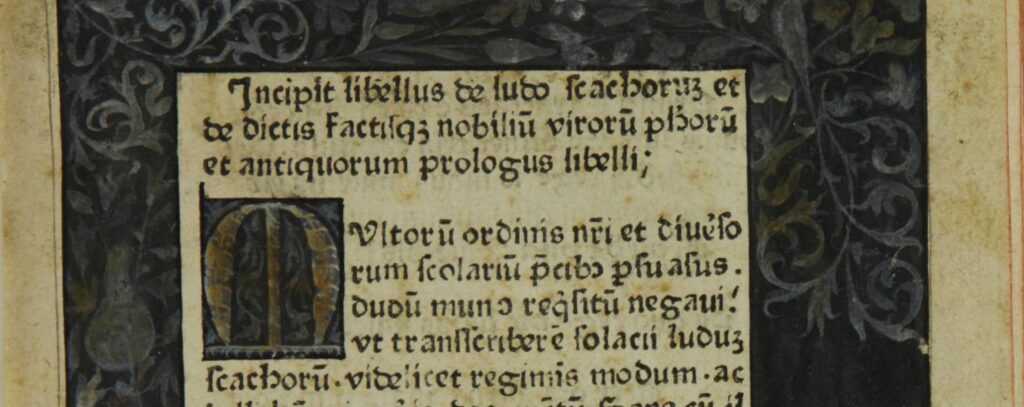 Incipit libellus de ludo scachoruꝫ et
de dictis Factisqꝫ nobiliū virorū pħorū
et antiquorum prologus libelli;
MVltorū ordinis nr̄i et diue̓so
rum scolariū p̄cibꝰ ꝑsuasus.
dudū
vt transcriberē solacii luduꝫ
scachorū. videlicet regiminis modum. ac